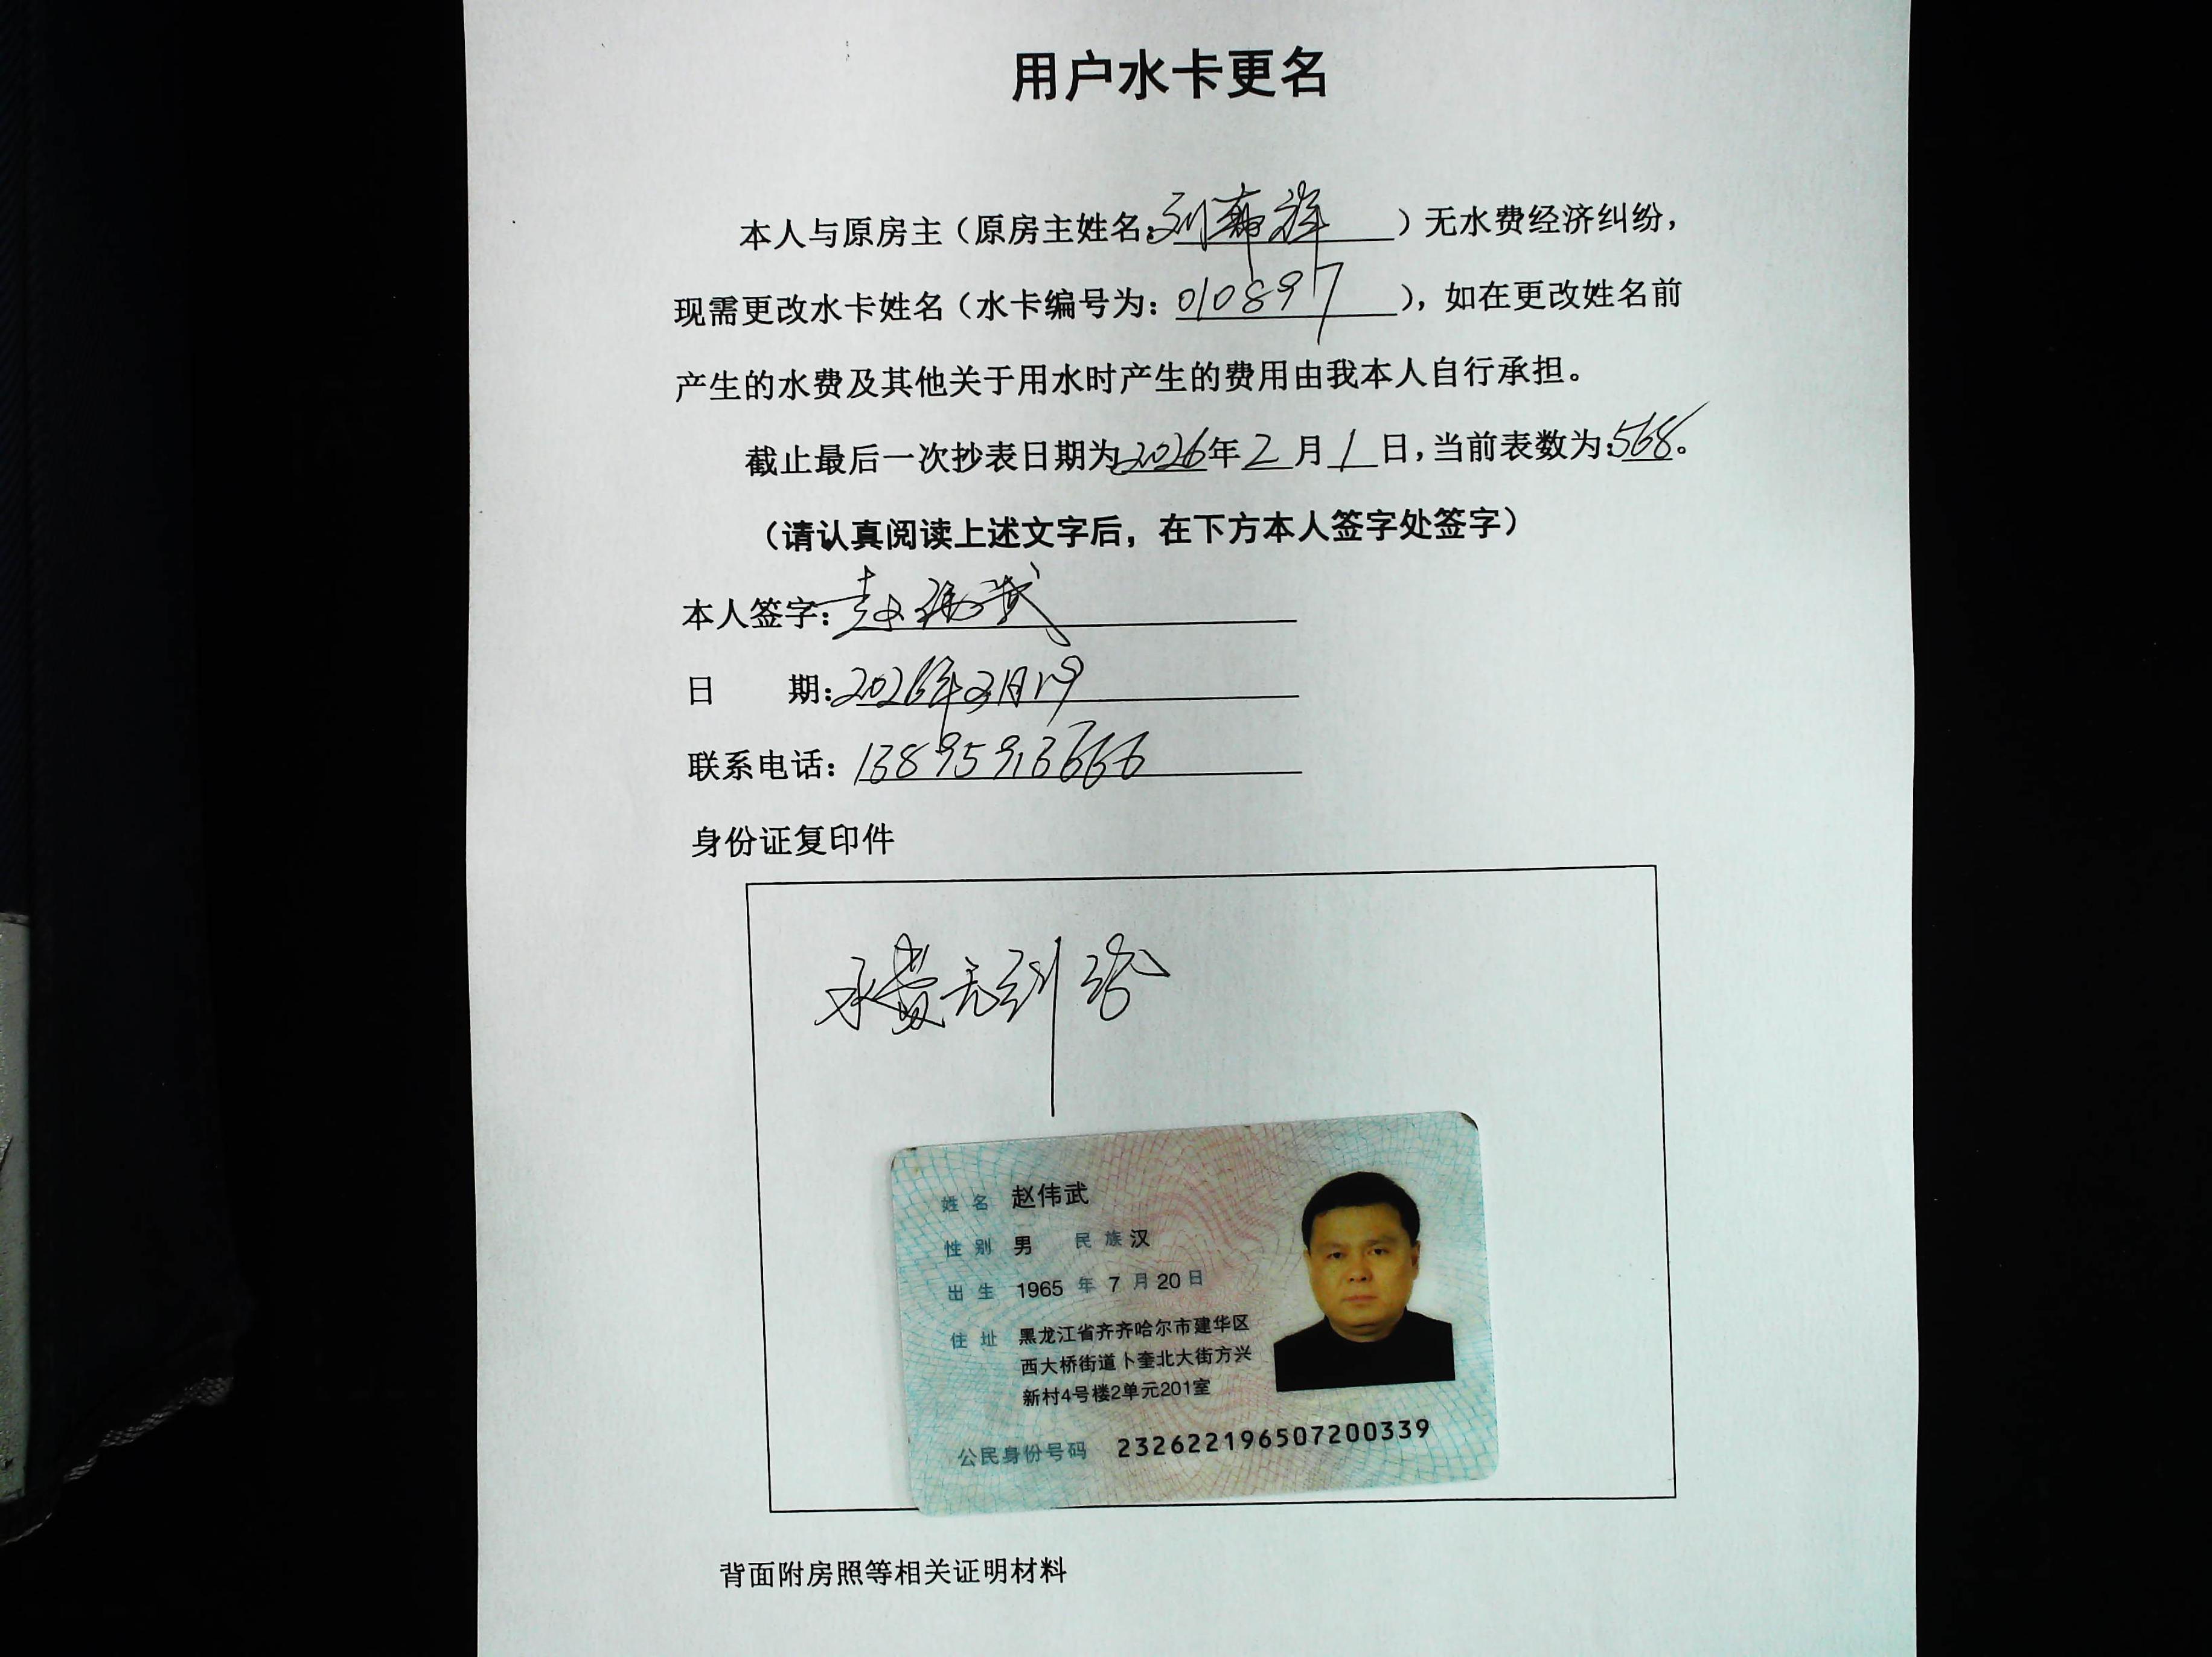 用户水卡更名
本人与原房主（原房主姓名：刘）无水费经济纠纷，
现需更改水卡姓名（水卡编号为：010897），如在更改姓名前
产生的水费及其他关于用水时产生的费用由我本人自行承担。
截止最后一次抄表日期为2026年2月1日，当前表数为：568。
（请认真阅读上述文字后，在下方本人签字处签字）
本人签字：赵伟武
日 期：2026年3月19
联系电话：13895913666
身份证复印件
水费无纠纷
姓名 赵伟武
性别 男 民族 汉
出生 1965 年 7 月 20 日
住址 黑龙江省齐齐哈尔市建华区
西大桥街道卜奎北大街方兴
新村4号楼2单元201室
公民身份号码 232622196507200339
背面附房照等相关证明材料